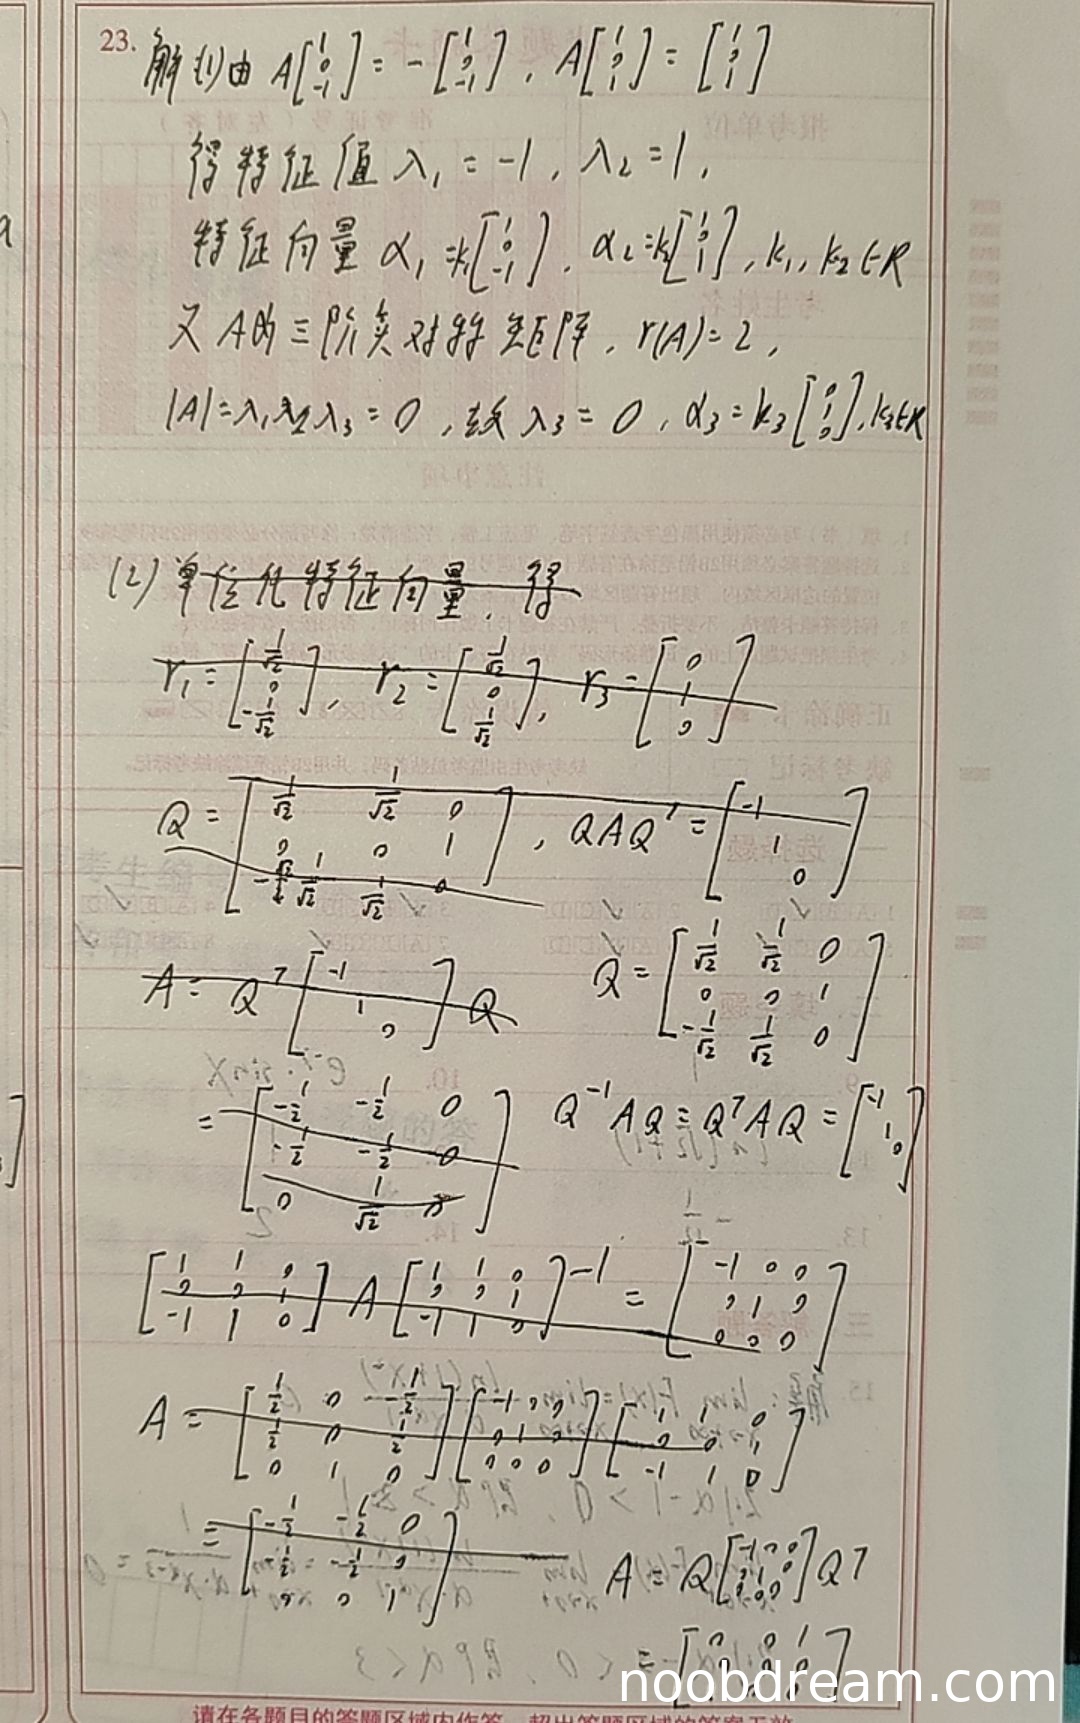 23. 解(1)由 A[1 0 -1] = -[1 0 -1], A[1 0 1] = [1 0 1]
得特征值 λ1 = -1, λ2 = 1,
特征向量 α1 = k1[1 0 -1], α2 = k2[1 0 1], k1, k2 ∈ R
又 A为三阶实对称矩阵, r(A) = 2,
|A| = λ1λ2λ3 = 0, 故 λ3 = 0, α3 = k3[0 1 0], k3∈R
(2) 单位化特征向量, 得
r1 = [1/√2 0 -1/√2], r2 = [1/√2 0 1/√2], r3 = [0 1 0]
Q = [1/√2 1/√2 0; 0 0 1; -1/√2 1/√2 0], QAQ^T = [-1 1 0]
A = Q^T[-1 1 0]Q
Q = [1/√2 1/√2 0; 0 0 1; -1/√2 1/√2 0]
= [-1/2 -1/2 0; -1/2 -1/2 0; 0 1/√2 0]
Q^-1AQ = Q^TAQ = [-1 1 0]
[1 1 0; 0 0 1; -1 1 0] A [1 1 0; 0 0 1; -1 1 0]^-1 = [-1 0 0; 0 1 0; 0 0 0]
A = [1/2 0 -1/2; 1/2 0 1/2; 0 1 0][-1 0 0; 0 1 0; 0 0 0][1 1 0; 0 0 1; -1 1 0]
= [-1/2 -1/2 0; -1/2 -1/2 0; 0 0 1]
A = Q[-1 0 0; 0 1 0; 0 0 0]Q^T
noobdream.com
请在各题目的答题区域内作答，超出答题区域的答案无效